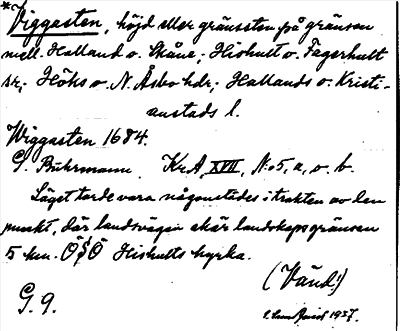 *) Viggasten, höjd eller gränssten på gränsen
mell. Halland o. Skåne; Hishult o. Fagerhult
sr; Höks o. N. Åsbo hdr; Hallands o. Kristi-
anstads l.
Wiggasten 1684.
G. Buhrmann KrA, XVII, No 5, a, o. b.
Läget torde vara någonstädes i trakten av den
punkt, där landsvägen skär landskapsgränsen
5 km. ÖSÖ Hishults kyrka.
(Vänd!)
G. 9.
1937.